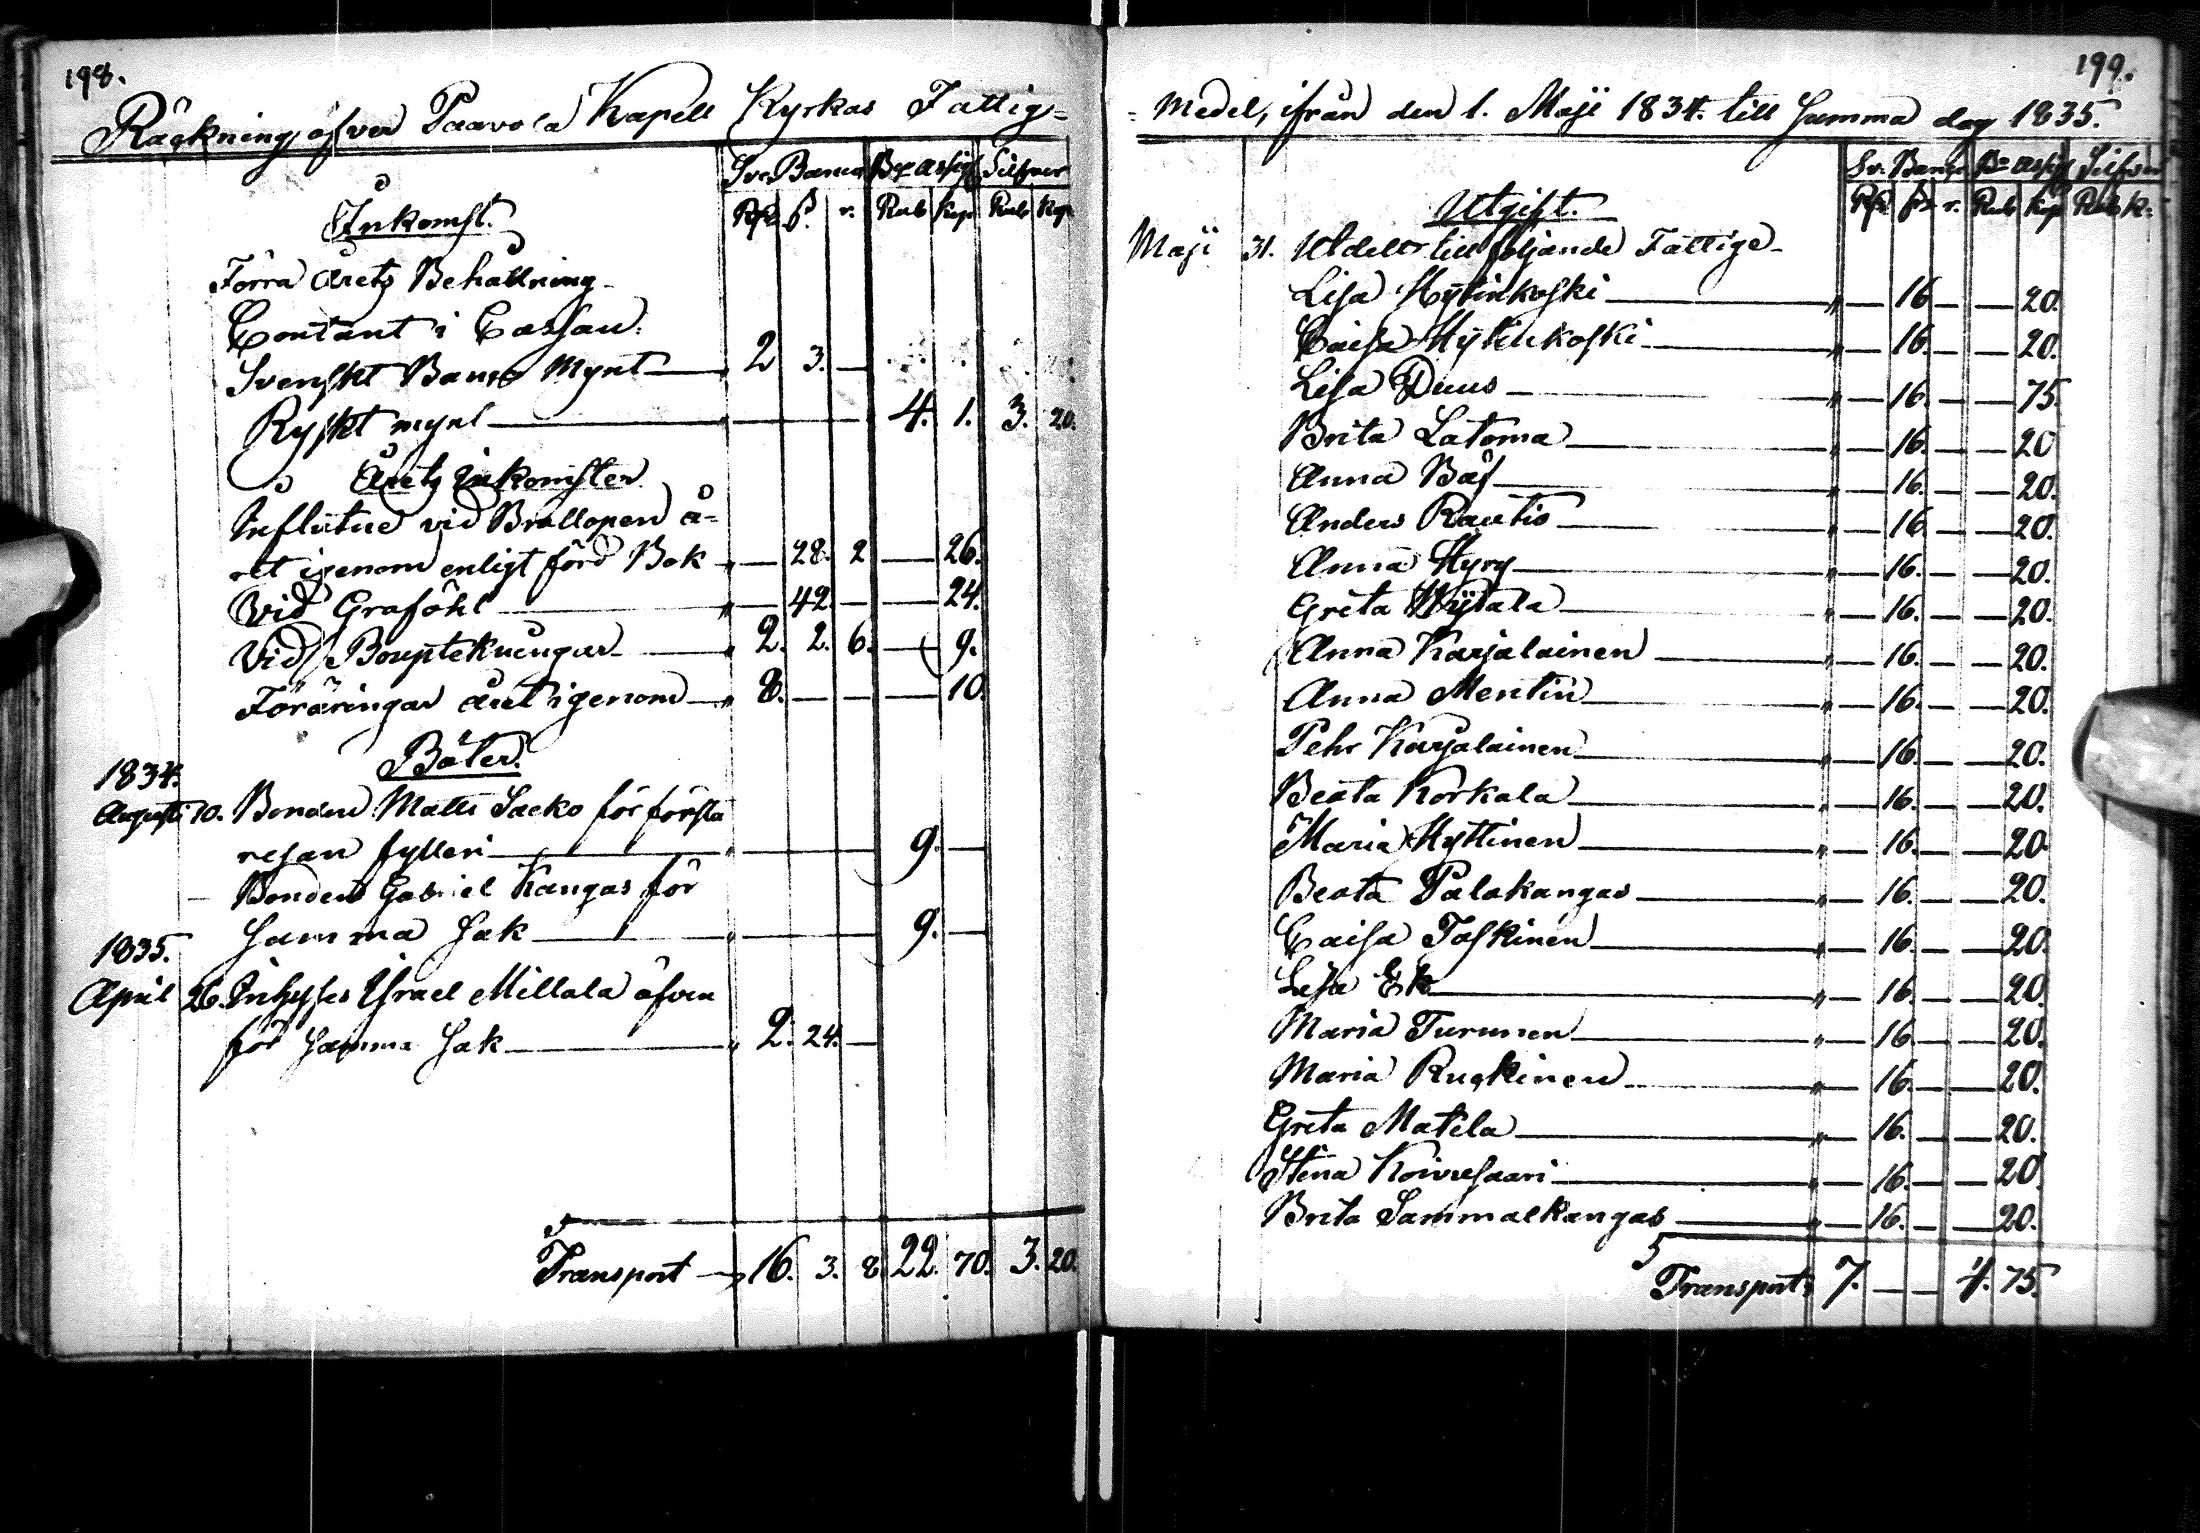 198.
Räckning öfver Paavola Kapell Kyrkas Fattig=
Sv. Banco Bco Assig Silfver
Rd. s. r. Rub Kop Rub Kop
Inkomst.
Förra årets Behållning
Contant i Cassan.
Svenskt Banco Mynt — 2 3. —
Ryskt mynt — 4. 1. 3. 20.
Årets Inkomster
Influtne vid Bröllopen å=
ret igenom enligt förd Bok " — 28. 2 — 26.
Vid Graföhl " — 42. — — 24.
Vid Bouptekningar " 2. 2. 6. — 9.
Föräringar året igenom " 8. — — — 10.
Böter.
1834.
Augusti 10. Bonden Matts Sacko för första
resan fylleri " — 9. —
— Bonden Gabriel Kangas för
samma sak " — 9. —
1835.
April 26. Inhyses Israel Millala äfven
för samma sak " 2. 24. —
Transport 16. 3. 8. 22. 70. 3. 20.
199.
= Medel, ifrån den 1. Maji 1834. till samma dag 1835.
Sv. Banco Bo Assig Silfver
Rd s. r. Rub Kop Rub K.
Utgift.
Maji 31. Utdelt till följande Fattige
Lisa Hytinkoski " — 16 — — 20.
Caisa Hytinkoski " — 16. — — 20.
Lisa Duus " — 16. — — 75.
Brita Latoma " — 16. — — 20
Anna Bäf " — 16. — — 20.
Anders Rautio " — 16. — — 20.
Anna Hyry " — 16. — — 20.
Greta Hytala " — 16. — — 20.
Anna Karjalainen " — 16. — — 20.
Anna Mentin " — 16. — — 20.
Pehr Karjalainen " — 16. — — 20.
Beata Korkala " — 16. — — 20.
Maria Hyttinen " — 16. — — 20.
Beata Palokangas " — 16. — — 20.
Caisa Taskinen " — 16. — — 20.
Lisa Ek " — 16. — — 20.
Maria Turunen " — 16. — — 20.
Maria Ruckinen " — 16. — — 20.
Greta Matila " — 16. — — 20.
Stina Koivusaari " — 16. — — 20.
Brita Sammalkangas " — 16. — — 20.
Transport 7. — — 4. 75